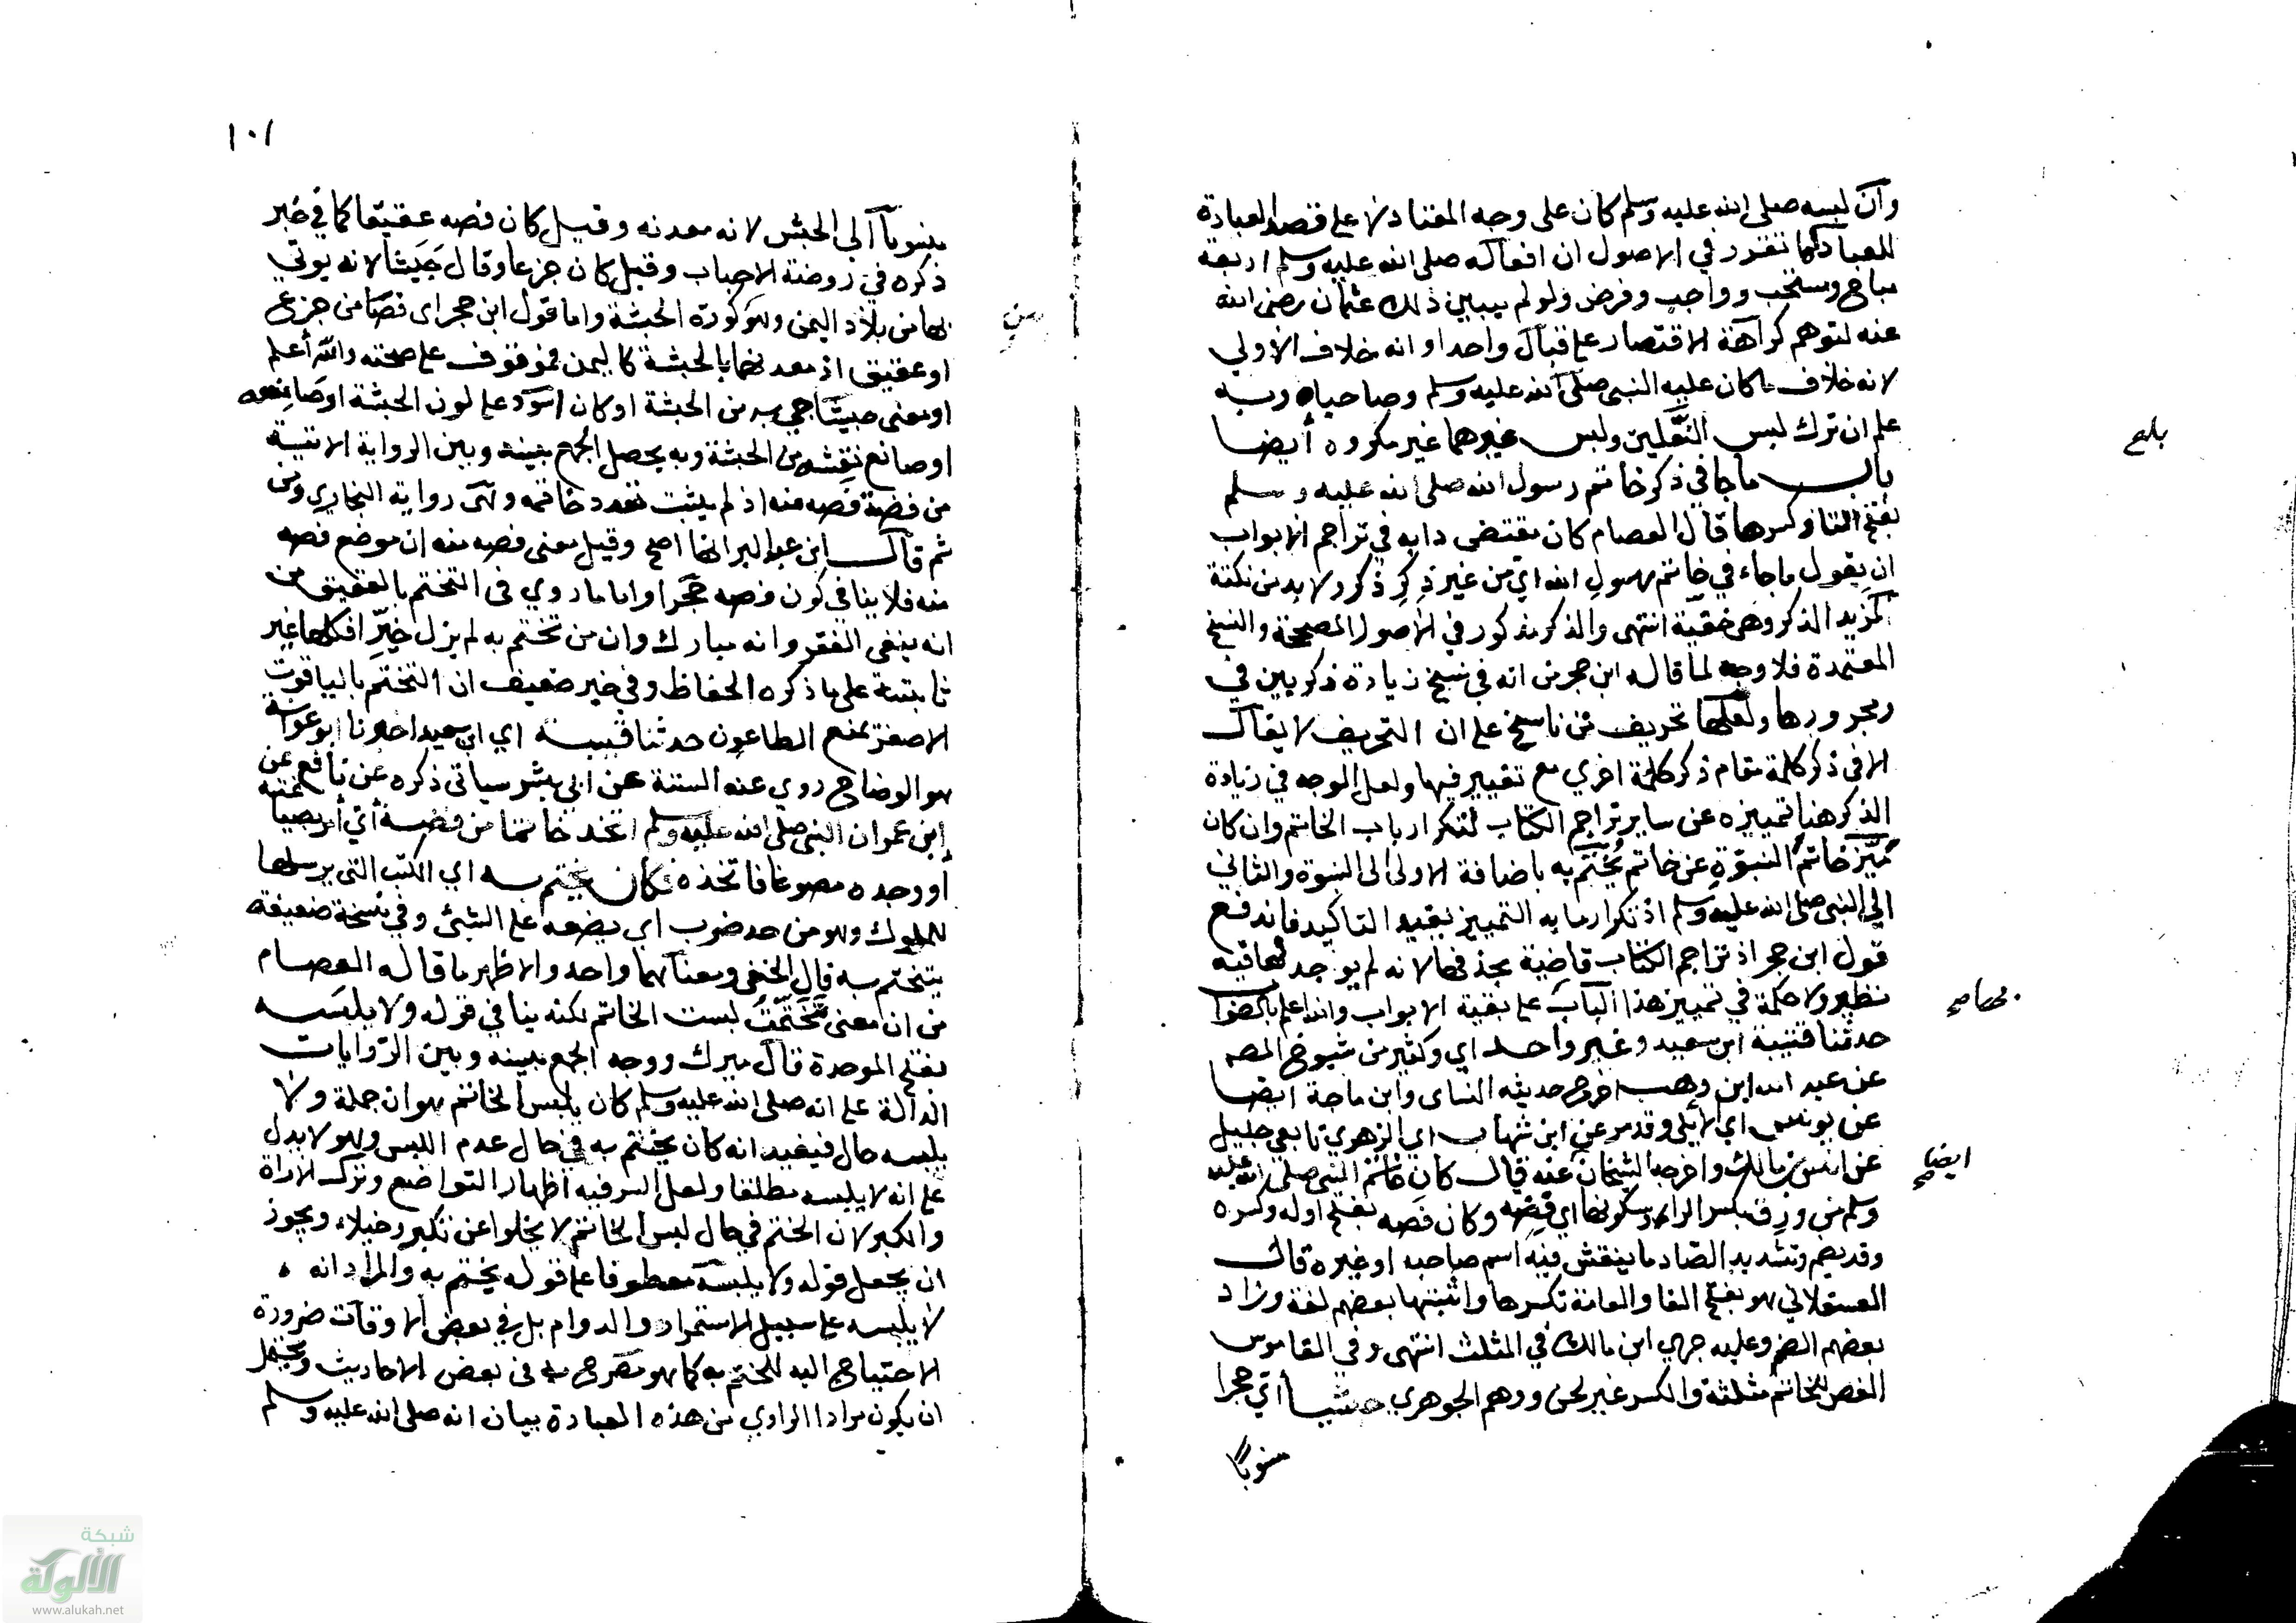 وان لبسه صلى الله عليه وسلم كان على وجه المعتاد لا على قصد العبادة
للعباد كما تقرر في الاصول ان افعاله صلى الله عليه وسلم اربعة
مباح ومستحب وواجب وفرض ولو لم يبين ذلك عثمان رضي الله
عنه لتوهم كراهة الاقتصار على قبال واحد او انه خلاف الاولى
لانه خلاف ما كان عليه النبي صلى الله عليه وسلم وصاحباه وبه
علم ان ترك لبس النعلين ولبس غيرهما غير مكروه أيضا
باب ما جا في ذكر خاتم رسول الله صلى الله عليه وسلم
بفتح التا وكسرها قال العصام كان مقتضى دابه في تراجم الابواب
ان يقول ما جاء في خاتم رسول الله اي من غير ذكر ذكر ولا بد من نكتة
لمزيد الذكر وهي خفية انتهى والذكر مذكور في الاصول المصححة والنسخ
المعتمدة فلا وجه لما قاله ابن حجر من انه في نسخ زيادة ذكر بين في
ومجرورها ولعلها تحريف من ناسخ على ان التحريف لا يقال
الا في ذكر كلمة مقام ذكر كلمة اخرى مع تغيير فيها ولعل الوجه في زيادة
الذكر هنا تمييزه عن ساير تراجم الكتاب لتكرار باب الخاتم وان كان
تميز خاتم النبوة عن خاتم يختم به باضافة الاولى الى النبوة والثاني
الى النبي صلى الله عليه وسلم اذ تكرار ما به التمييز يفيد التاكيد فاندفع
قول ابن حجر اذ تراجم الكتاب قاضية بحذفها لانه لم يوجد لها فيه
نظير ولا حكمة في تمييز هذا الباب على بقية الابواب والله اعلم بالصواب
حدثنا قتيبة ابن سعيد وغير واحد اي وكثير من شيوخ المصـ
عن عبد الله ابن وهب اخرج حديثه النساى وابن ماجة ايضا
عن يونس اي الايلي وقد مر عن ابن شهاب اي الزهري تابعي جليل
عن انس بن مالك واخرجه الشيخان عنه قال كان خاتم النبي صلى الله عليه
وسلم من ورق بكسر الراء وسكونها اي فضة وكان فصه بفتح اوله وكسره
وقد يضم وتشديد الصاد ما ينقش فيه اسم صاحبه او غيره قال
العسقلاني هو بفتح الفا والعامة تكسرها واثبتها بعضهم لغة وزاد
بعضهم الضم وعليه جرى ابن مالك في المثلث انتهى وفي القاموس
الفص للخاتم مثلثة والكسر غير لحن ووهم الجوهري حبشيا اي حجرا
منسوبا
بلغ
ايضا
١٠١
منسوبا الى الحبش لانه معدنه وقيل كان فصه عقيقا كما في خبر
ذكره في روضة الاحباب وقيل كان جزعا وقال حبشيا لانه يوتي
بها من بلاد اليمن وهو كورة الحبشة واما قول ابن حجر اى فصا من جزع
او عقيق اذ معدنهما بالحبشة كاليمن فموقوف على صحته والله أعلم
او معنى حبشيا جي به من الحبشة او كان اسود على لون الحبشة او صانعه
او صانع نقشه من الحبشة وبه يحصل الجمع بينه وبين الرواية الاتية
من فضة فصه منه اذ لم يثبت تعدد خاتمه وهي رواية البخاري ومن
ثم قال ابن عبد البر انها اصح وقيل معنى فصه منه ان موضع فصه
منه فلا ينافي كون فصه حجرا واما ما روي في التختم بالعقيق من
انه ينفي الفقر وانه مبارك وان من تختم به لم يزل خيرا فكلها غير
ثابتة على ما ذكره الحفاظ وفي خبر ضعيف ان التختم بالياقوت
الاصفر يمنع الطاعون حدثنا قتيبة اي ابن سعيد اخبرنا ابو عوانة
هو الوضاح روي عنه الستة عن ابي بشر سياتي ذكره عن نافع عن
ابن عمر ان النبي صلى الله عليه وسلم اتخذ خاتما من فضة أي أمر بصياغته
أو وجده مصوغا فاتخذه فكان يختم به اي الكتب التي يرسلها
للملوك وهو من حد ضرب اي يضعه على الشئ وفي نسخة ضعيفة
يتختم به قال الحنفي ومعناهما واحد والاظهر ما قاله العصام
من ان معنى تختمت لبست الخاتم لكنه ينافي قوله ولا يلبسه
بفتح الموحدة قال ميرك ووجه الجمع بينه وبين الروايات
الدالة على انه صلى الله عليه وسلم كان يلبس الخاتم هو ان جملة ولا
يلبسه حال فيفيد انه كان يختم به في حال عدم اللبس وهو لا يدل
على انه لا يلبسه مطلقا ولعل السر فيه اظهار التواضع وترك الاراة
والكبر لان الختم في حال لبس الخاتم لا يخلوا عن تكبر وخيلاء ويجوز
ان يجعل قوله ولا يلبسه معطوفا على قوله يختم به والمراد انه
لا يلبسه على سبيل الاستمرار والدوام بل في بعض الاوقات ضرورة
الاحتياج اليه للختم به كما هو مصرح به في بعض الاحاديث ويحتمل
ان يكون مراد الراوي من هذه العبادة بيان انه صلى الله عليه وسلم
شبكة
الألوكة
www.alukah.net